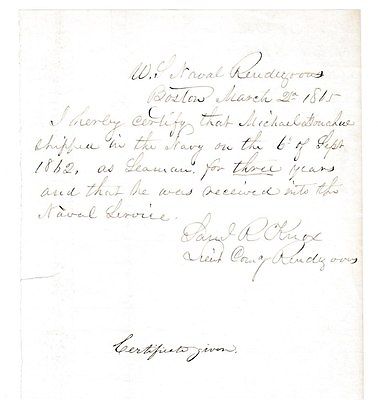 U.S. Naval Rendezvous
Boston March 2d 1865
I hereby certify that Michael Donahue
shipped in the Navy on the 6th of Sept
1862, as Seaman, for three years
and that he was received into the
Naval Service.
Saml R Knox
Lieut Comg Rendezvous
Certificate given.